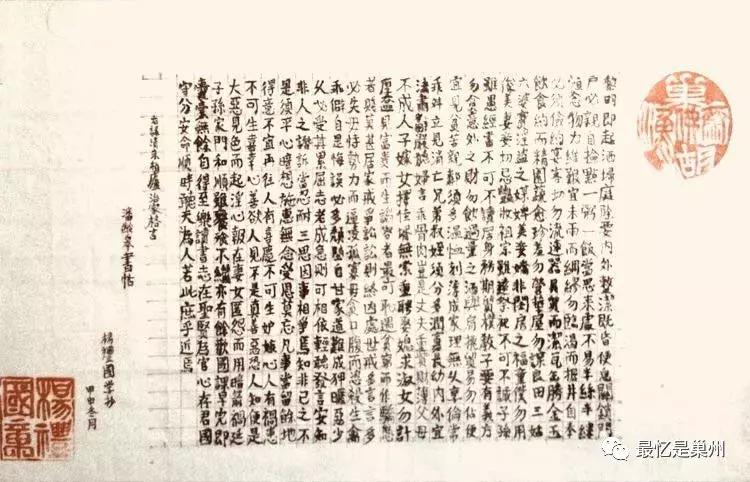 黎明即起洒掃庭除要內外整潔既昏便息關鎖門
戶必親自檢點一粥一飯當思來處不易半絲半縷
恒念物力維艱宜未雨而綢繆勿臨渴而掘井自奉
必須儉約宴客切勿流連器具質而潔瓦缶勝金玉
飲食約而精園蔬愈珍羞勿營華屋勿謀良田三姑
六婆實淫盜之媒婢美妾嬌非閨房之福童僕勿用
俊美妻妾切忌豔妝祖宗雖遠祭祀不可不誠子孫
雖愚經書不可不讀居身務期質樸教子要有義方
勿貪意外之財勿飲過量之酒與肩挑貿易勿佔便
宜見貧苦親鄰須多溫恤刻薄成家理無久享倫常
乖舛立見消亡兄弟叔姪須分多潤寡長幼內外宜
法肅辭嚴聽婦言乖骨肉豈是丈夫重資財薄父母
不成人子嫁女擇佳婿無索重聘娶媳求淑女勿計
厚奩見富貴而生諂容者最可恥遇貧窮而作驕態
者賤莫甚居家戒爭訟訟則終凶處世戒多言言多
必失毋恃勢力而凌逼孤寡毋貪口腹而恣殺生禽
乖僻自是悔誤必多頹墮自甘家道難成狎暱惡少
久必受其累屈志老成急則可相依輕聽發言安知
非人之譖訴當忍耐三思因事相爭焉知非己之不
是須平心暗想施惠無念受恩莫忘凡事當留餘地
得意不宜再往人有喜慶不可生妒嫉心人有禍患
不可生喜幸心善欲人見不是真善惡恐人知便是
大惡見色而起淫心報在妻女匿怨而用暗箭禍延
子孫家門和順雖饔飧不繼亦有餘歡國課早完即
囊橐無餘自得至樂讀書志在聖賢為官心在君國
守分安命順時聽天為人若此庶乎近焉
右錄清朱柏廬治家格言
潘齡皋書帖
楊禮國學抄
甲申冬月
楊禮國章
最忆是巢州